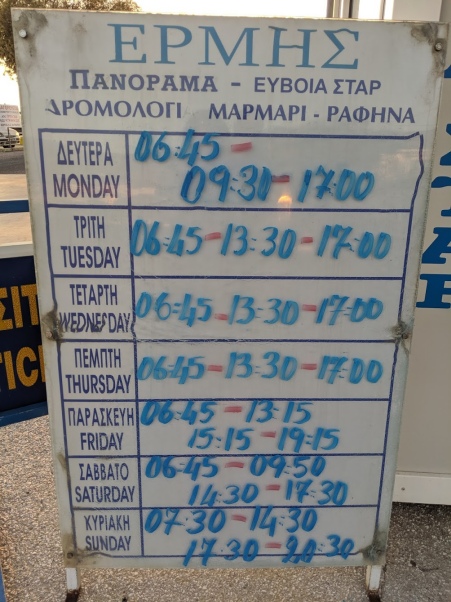 ΕΡΜΗΣ
ΠΑΝΟΡΑΜΑ - ΕΥΒΟΙΑ ΣΤΑΡ
ΔΡΟΜΟΛΟΓΙ ΜΑΡΜΑΡΙ - ΡΑΦΗΝΑ
ΔΕΥΤΕΡΑ
MONDAY
06:45 -
09:30 - 17:00
ΤΡΙΤΗ
TUESDAY
06:45 - 13:30 - 17:00
ΤΕΤΑΡΤΗ
WEDNESDAY
06:45 - 13:30 - 17:00
ΠΕΜΠΤΗ
THURSDAY
06:45 - 13:30 - 17:00
ΠΑΡΑΣΚΕΥΗ
FRIDAY
06:45 - 13:15
15:15 - 19:15
ΣΑΒΒΑΤΟ
SATURDAY
06:45 - 09:50
14:30 - 17:30
ΚΥΡΙΑΚΗ
SUNDAY
07:30 - 14:30
17:30 - 20:30